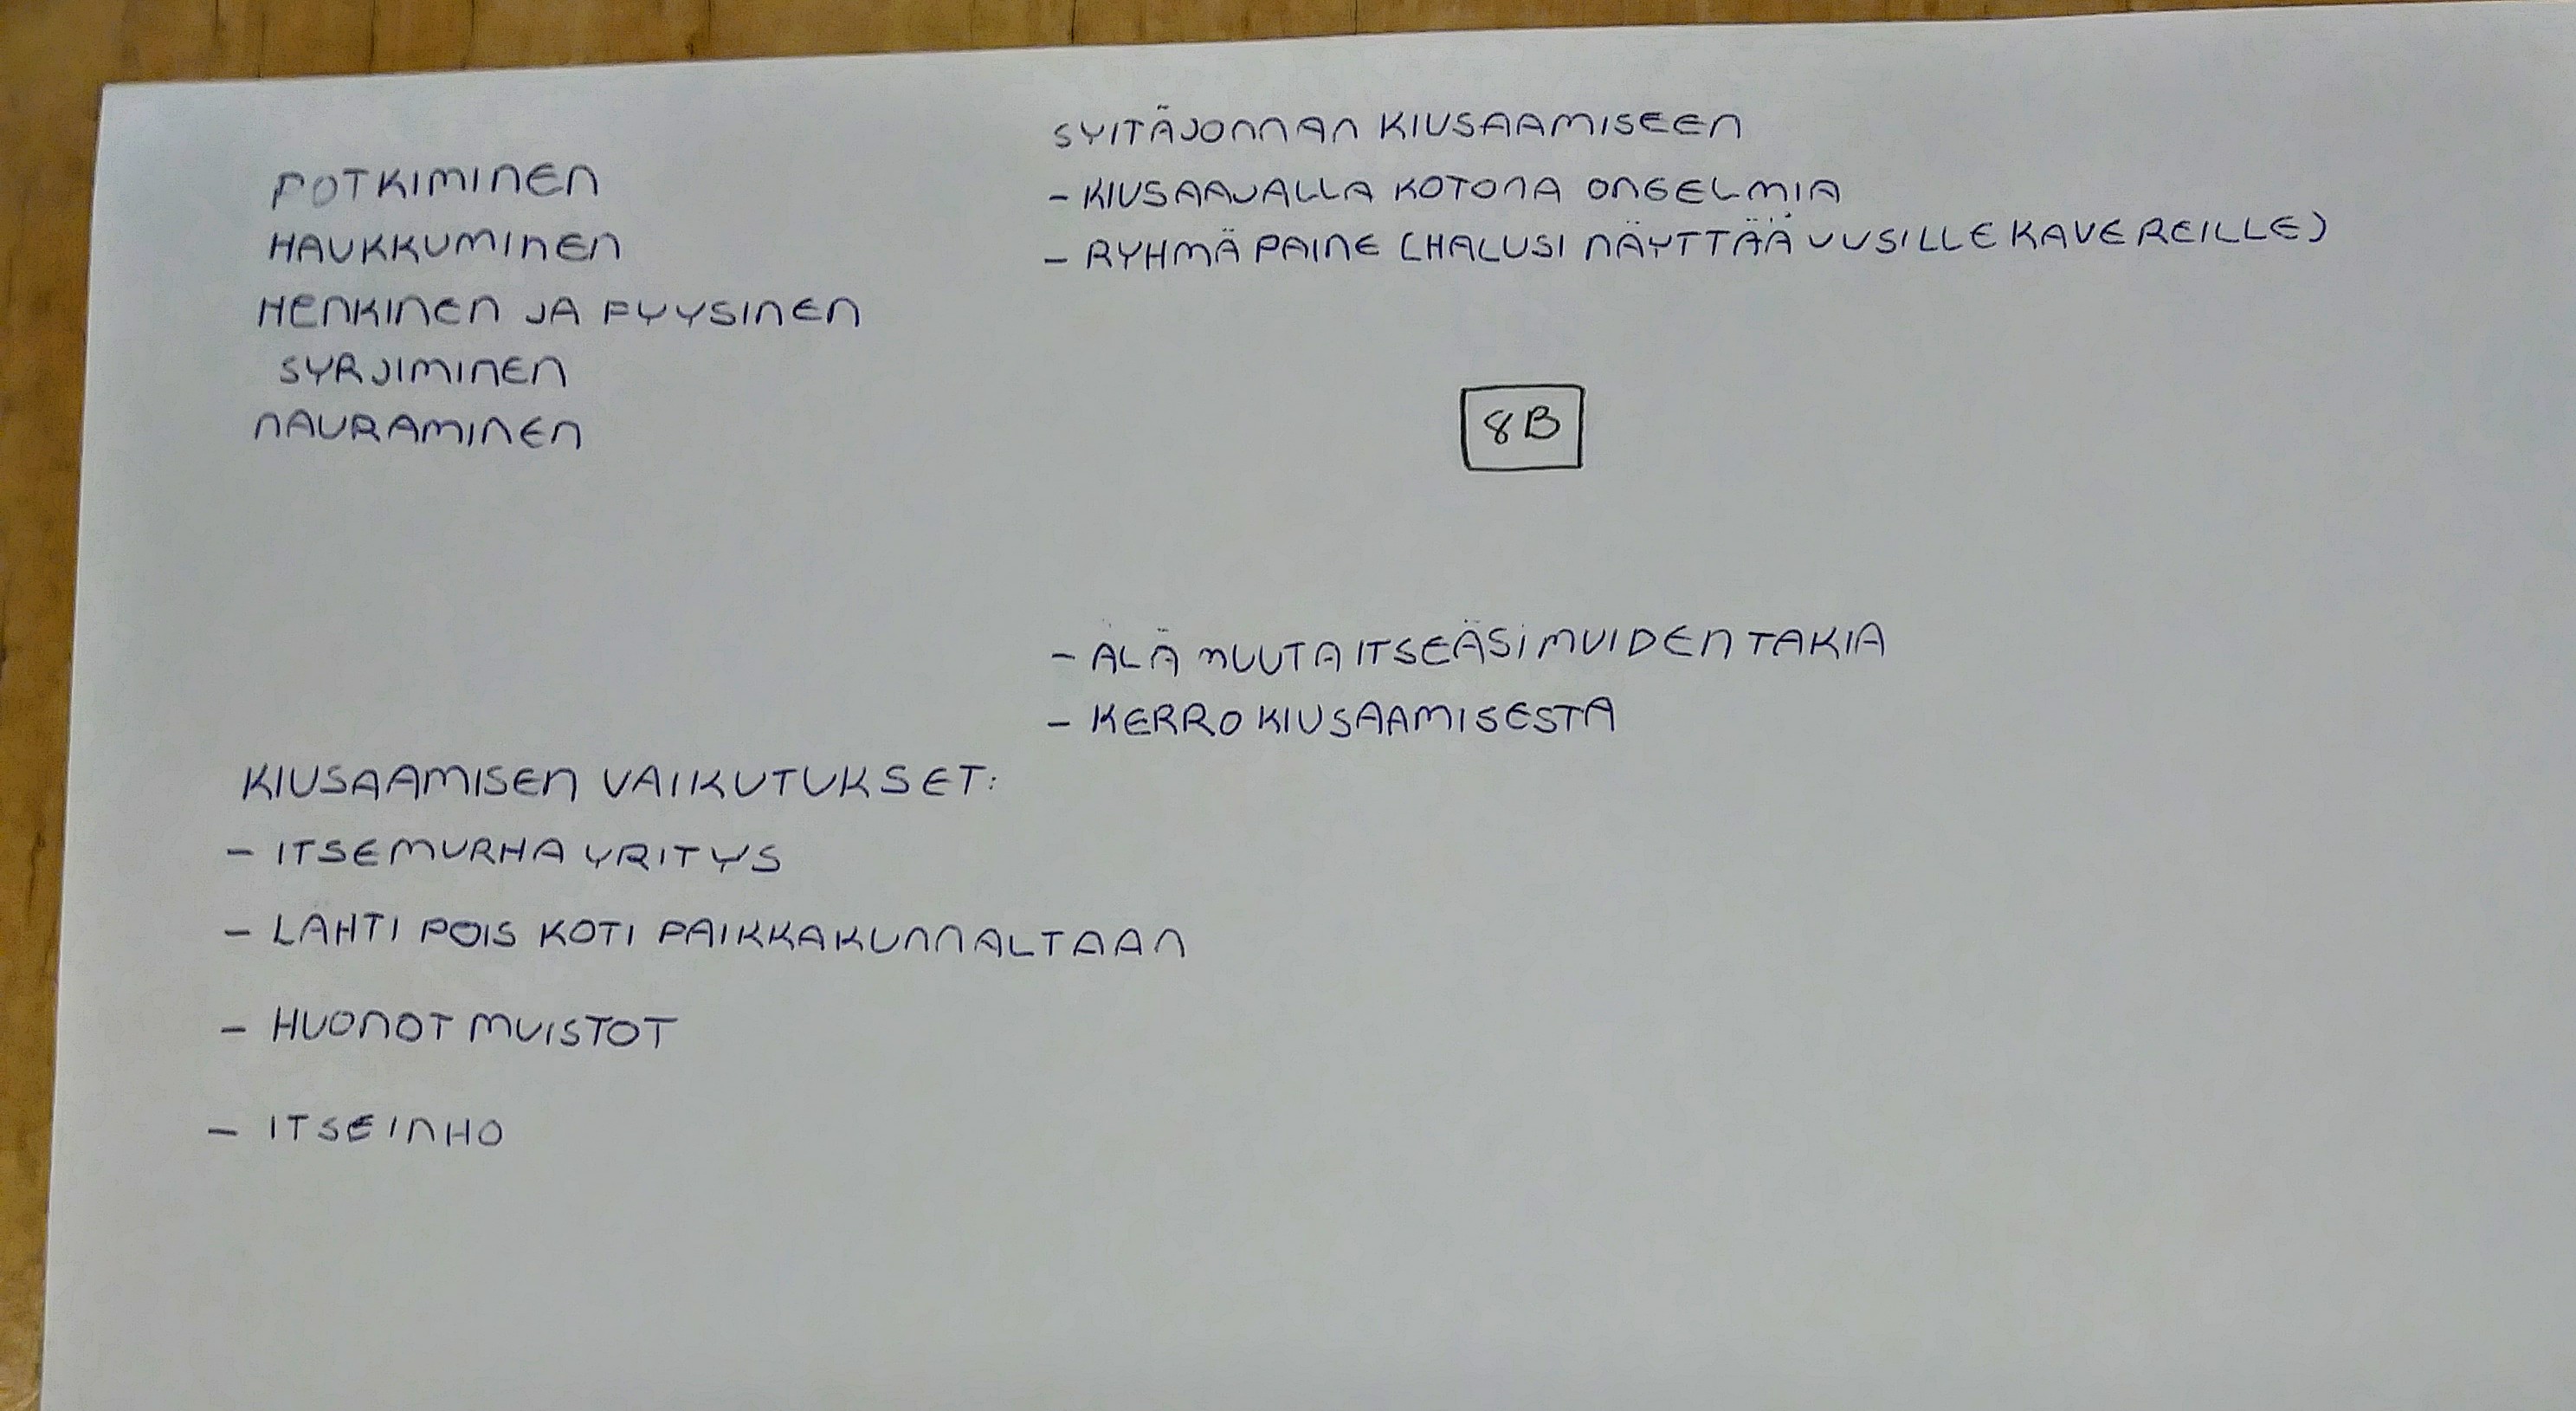 POTKIMINEN
HAUKKUMINEN
HENKINEN JA FYYSINEN
SYRJIMINEN
NAURAMINEN
SYITÄ JONNAN KIUSAAMISEEN
- KIUSAAJALLA KOTONA ONGELMIA
- RYHMÄ PAINE (HALUSI NÄYTTÄÄ UUSILLE KAVEREILLE)
8B
- ÄLÄ MUUTA ITSEÄSI MUIDEN TAKIA
- KERRO KIUSAAMISESTA
KIUSAAMISEN VAIKUTUKSET:
- ITSEMURHA YRITYS
- LÄHTI POIS KOTI PAIKKAKUNNALTAAN
- HUONOT MUISTOT
- ITSEINHO